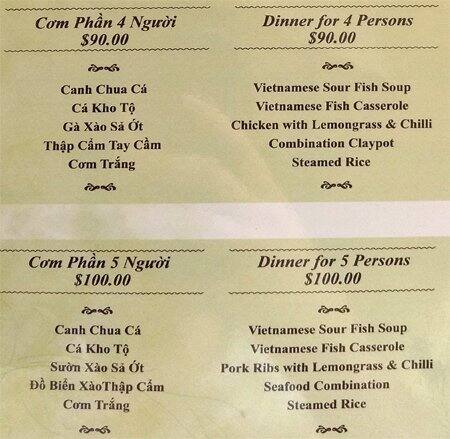 Cơm Phần 4 Người
$90.00
Canh Chua Cá
Cá Kho Tộ
Gà Xào Sả Ớt
Thập Cẩm Tay Cầm
Cơm Trắng
Dinner for 4 Persons
$90.00
Vietnamese Sour Fish Soup
Vietnamese Fish Casserole
Chicken with Lemongrass & Chilli
Combination Claypot
Steamed Rice
Cơm Phần 5 Người
$100.00
Canh Chua Cá
Cá Kho Tộ
Sườn Xào Sả Ớt
Đồ Biển XàoThập Cẩm
Cơm Trắng
Dinner for 5 Persons
$100.00
Vietnamese Sour Fish Soup
Vietnamese Fish Casserole
Pork Ribs with Lemongrass & Chilli
Seafood Combination
Steamed Rice